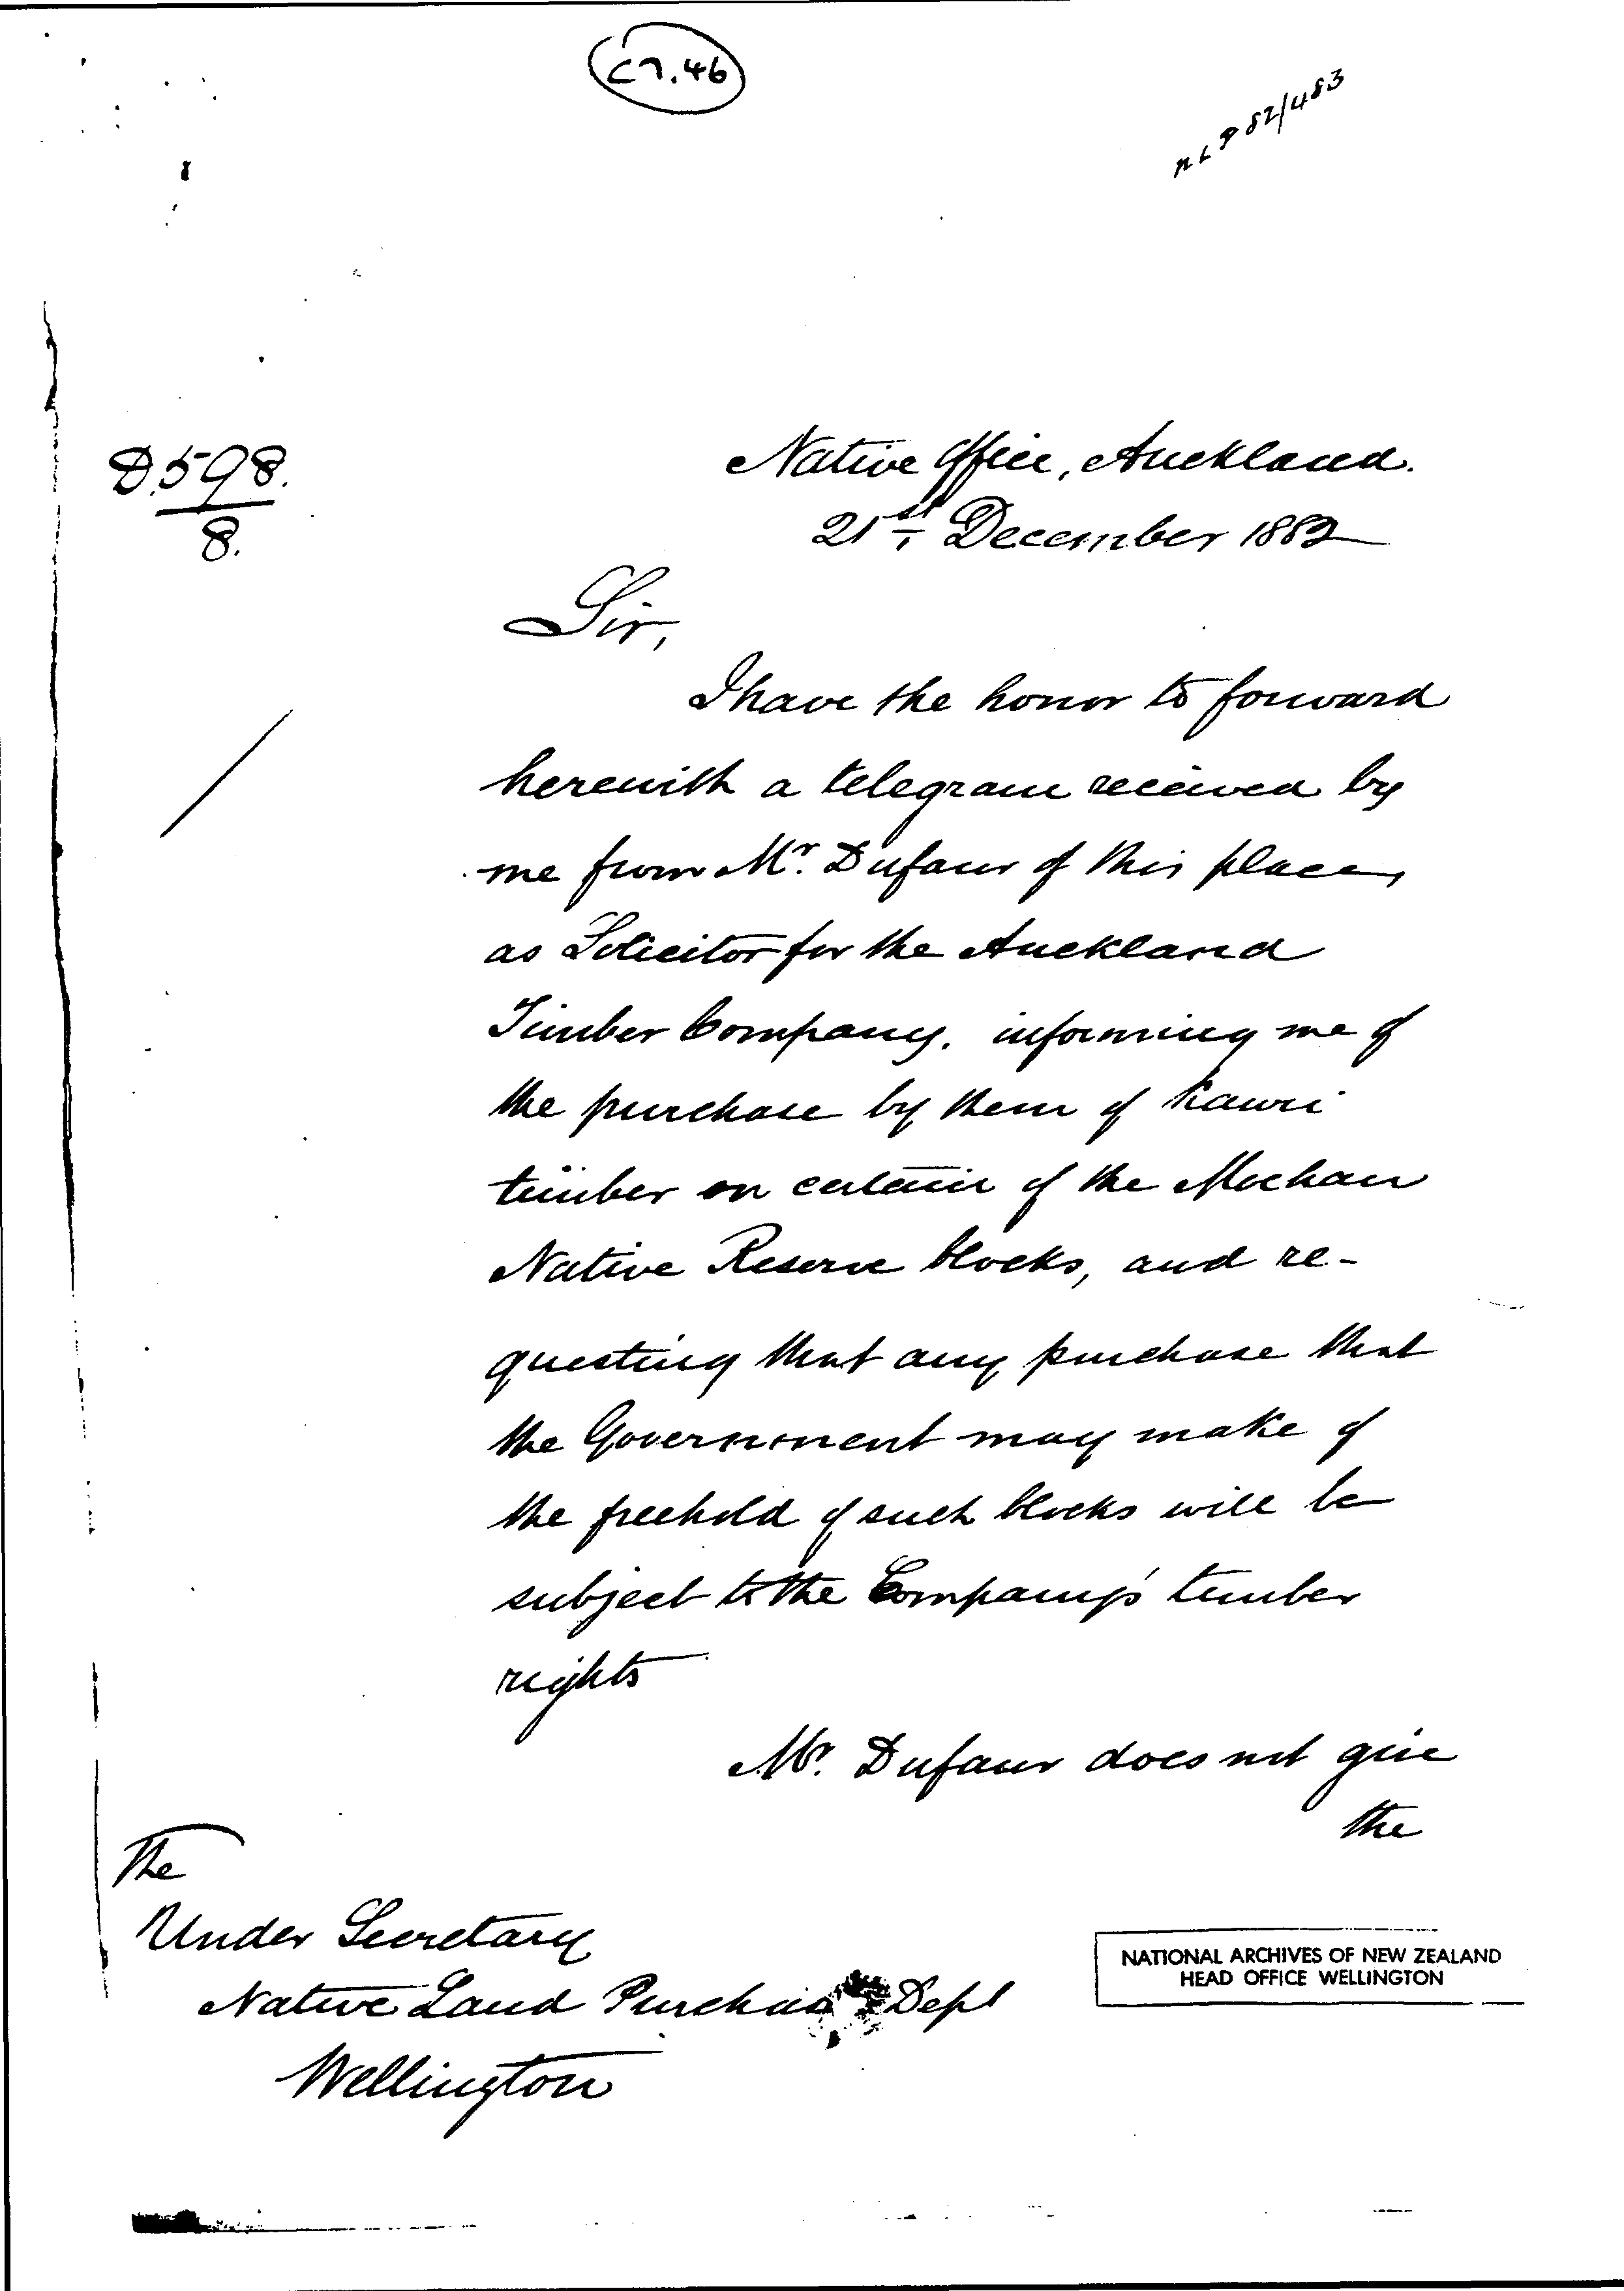 C7.46
NLP 82/483
D.598.
8.
Native Office, Auckland.
21st December 1882
Sir,
I have the honor to forward
herewith a telegram received by
me from Mr. Dufaur of this place,
as Solicitor for the Auckland
Timber Company. informing me of
the purchase by them of Kauri
timber on certain of the Moehau
Native Reserve blocks, and re-
questing that any purchase that
the Government may make of
the freehold of such blocks will be
subject to the Company's timber
rights
Mr. Dufaur does not give
the
The
Under Secretary
Native Land Purchase Dept
Wellington
NATIONAL ARCHIVES OF NEW ZEALAND
HEAD OFFICE WELLINGTON